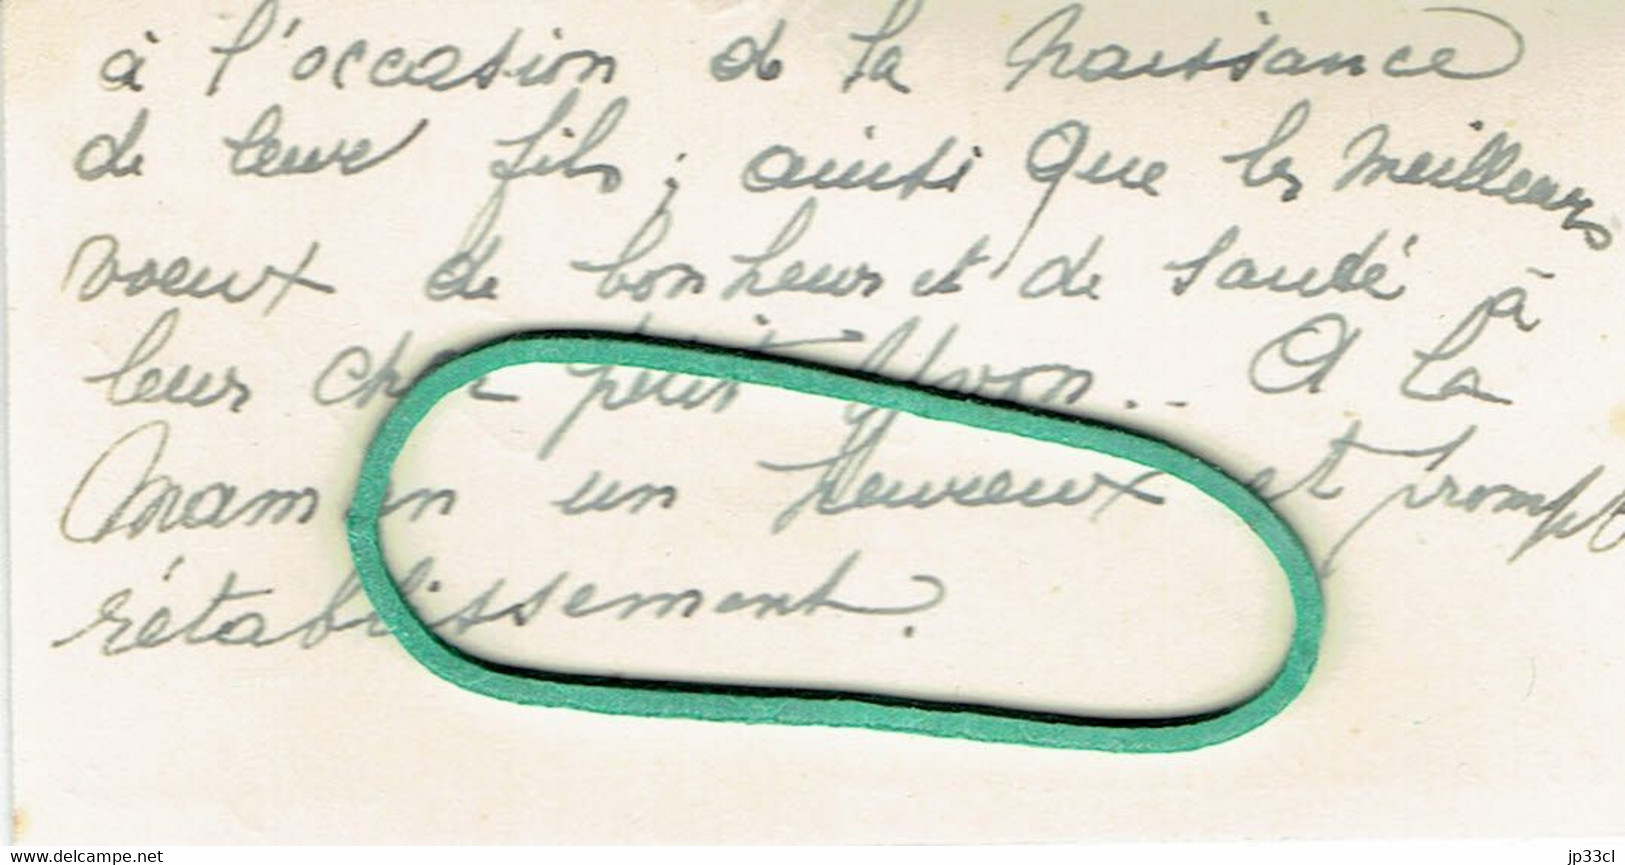 à l'occasion de la naissance
de leur fils ; ainsi que les meilleurs
voeux de bonheur et de santé à
leur cher petit Yvon.. A la
Maman un heureux et prompt
rétablissement.
www.delcampe.net
jp33cl